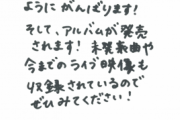 ようにがんばります!
そして、アルバムが発売
されます! 未発表曲や
今までのライブ映像も
収録されているので
ぜひみてください!